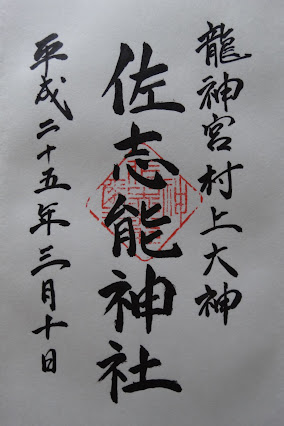 龍神宮村上大神
佐志能神社
平成二十五年三月十日